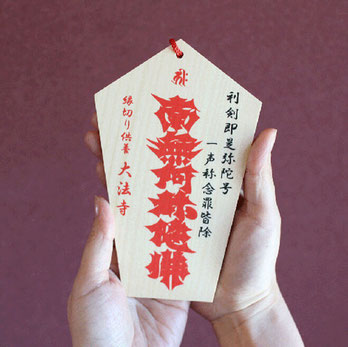 利剣即是弥陀号
一声称念罪皆除
南無阿弥陀佛
縁切り供養 大法寺